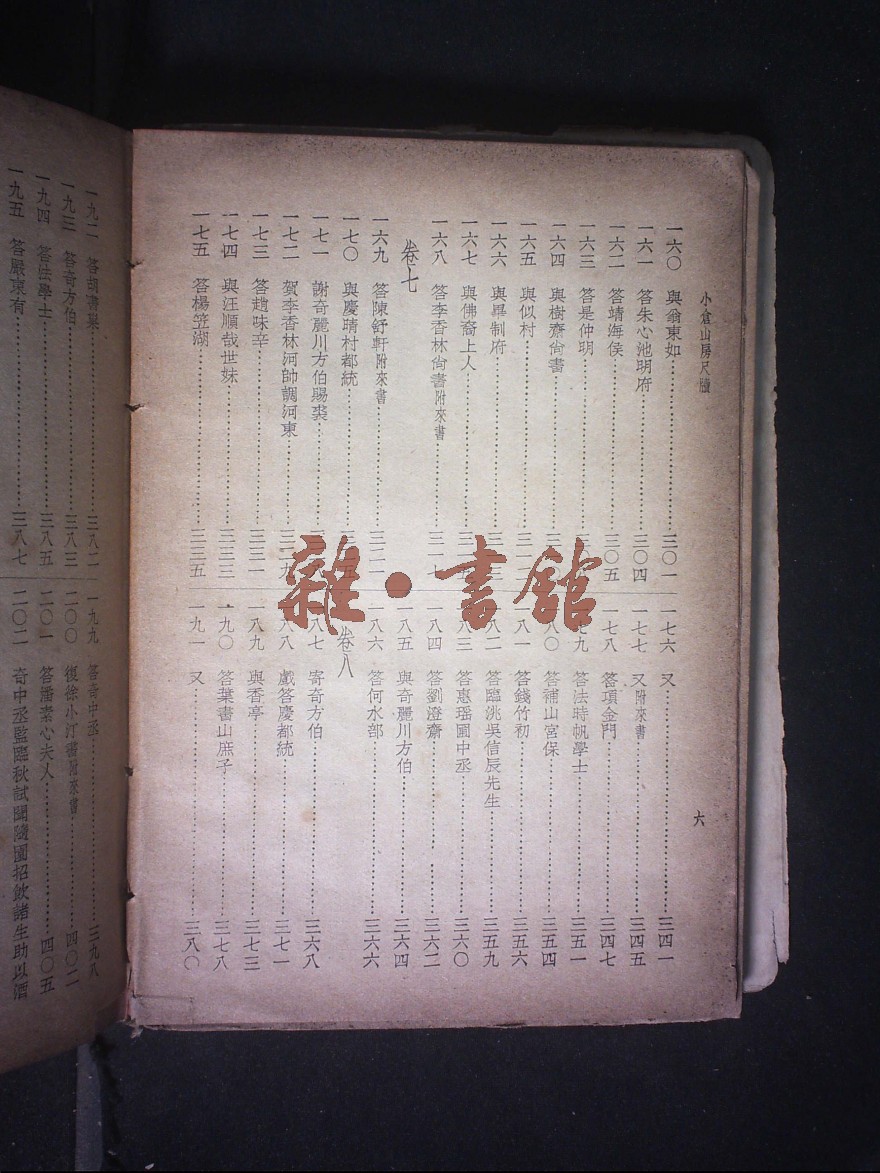 小倉山房尺牘
一六〇 與翁東如 三〇一
一六一 答朱心池明府 三〇四
一六二 答靖海侯 三〇五
一六三 答是仲明
一六四 與樹齋尙書
一六五 與似村
一六六 與畢制府
一六七 與佛裔上人
一六八 答李香林尙書附來書
卷七
一六九 答陳舒軒附來書 三二二
一七〇 與慶晴村都統
一七一 謝奇麗川方伯賜裘
一七二 賀李香林河帥調河東 三二九
一七三 答趙味辛 三三一
一七四 與汪順哉世妹 三三三
一七五 答楊笠湖 三三五
一七六 又 三四一
一七七 又附來書 三四五
一七八 答項金門 三四七
七九 答法時帆學士 三五一
八〇 答補山宮保 三五四
八一 答錢竹初 三五六
八二 答臨洮吳信辰先生 三五九
八三 答惠瑤圃中丞 三六〇
一八四 答劉澄齋 三六二
一八五 與奇麗川方伯 三六四
八六 答何水部 三六六
卷八
八七 寄奇方伯 三六八
八八 戲答慶都統 三七一
一八九 與香亭 三七三
一九〇 答葉書山庶子 三七八
一九一 又 三八〇
六
一九二 答胡書巢 三八二
一九三 答奇方伯 三八三
一九四 答法學士 三八五
一九五 答嚴東有 三八七
一九九 答奇中丞 三九八
二〇〇 復徐小汀附來書 四〇二
二〇一 答潘素心夫人 四〇五
二〇二 奇中丞監臨秋試闈隨園招飲諸生助以酒
雜·書館